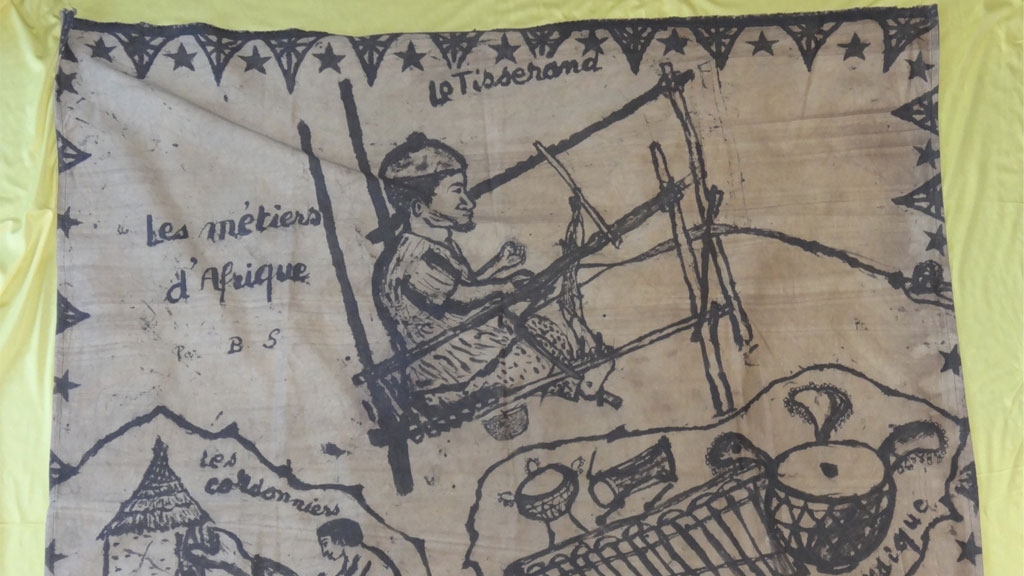 Le Tisserand
Les métiers
d'Afrique
Par B S
Les
cordonniers